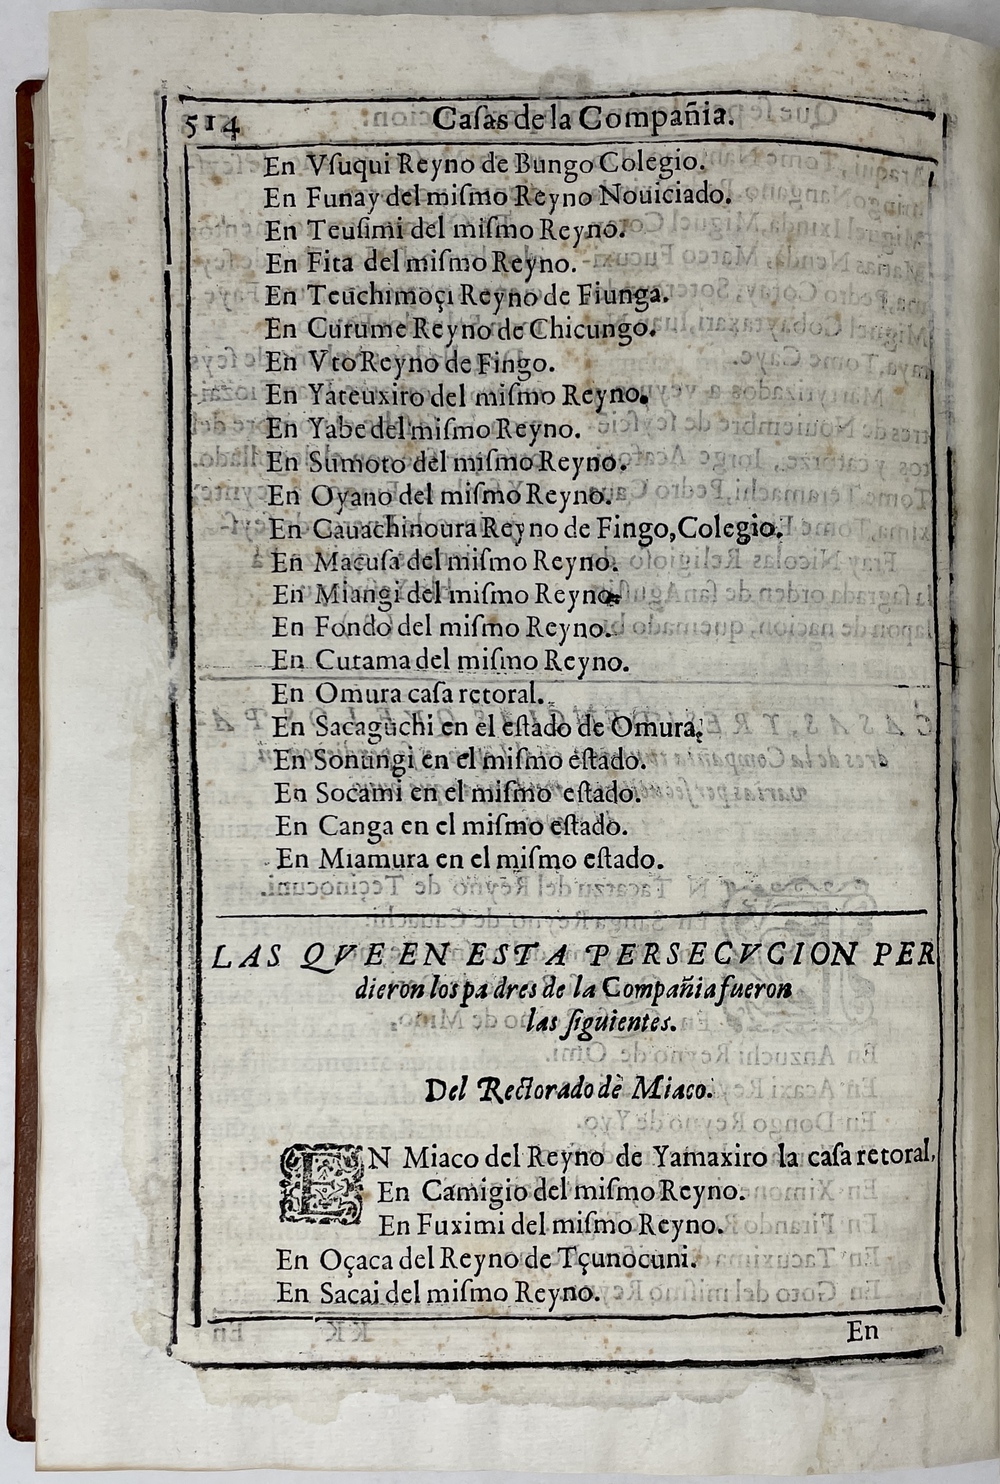 514 Caſas de la Compañia.
En Vſuqui Reyno de Bungo Colegio.
En Funay del miſmo Reyno Nouiciado.
En Teuſimi del miſmo Reyno.
En Fita del miſmo Reyno.
En Teuchimoçi Reyno de Fiunga.
En Curume Reyno de Chicungo.
En Vto Reyno de Fingo.
En Yateuxiro del miſmo Reyno.
En Yabe del miſmo Reyno.
En Sumoto del miſmo Reyno.
En Oyano del miſmo Reyno.
En Cauachinoura Reyno de Fingo, Colegio.
En Maçuſa del miſmo Reyno.
En Miangi del miſmo Reyno.
En Fondo del miſmo Reyno.
En Cutama del miſmo Reyno.
En Omura caſa retoral.
En Sacaguchi en el eſtado de Omura.
En Sonungi en el miſmo eſtado.
En Socami en el miſmo eſtado.
En Canga en el miſmo eſtado.
En Miamura en el miſmo eſtado.
LAS QVE EN ESTA PERSECVCION PER
dieron los padres de la Compañia fueron
las ſiguientes.
Del Rectorado de Miaco.
EN Miaco del Reyno de Yamaxiro la caſa retoral,
En Camigio del miſmo Reyno.
En Fuximi del miſmo Reyno.
En Oçaca del Reyno de Tçunocuni.
En Sacai del miſmo Reyno.
En